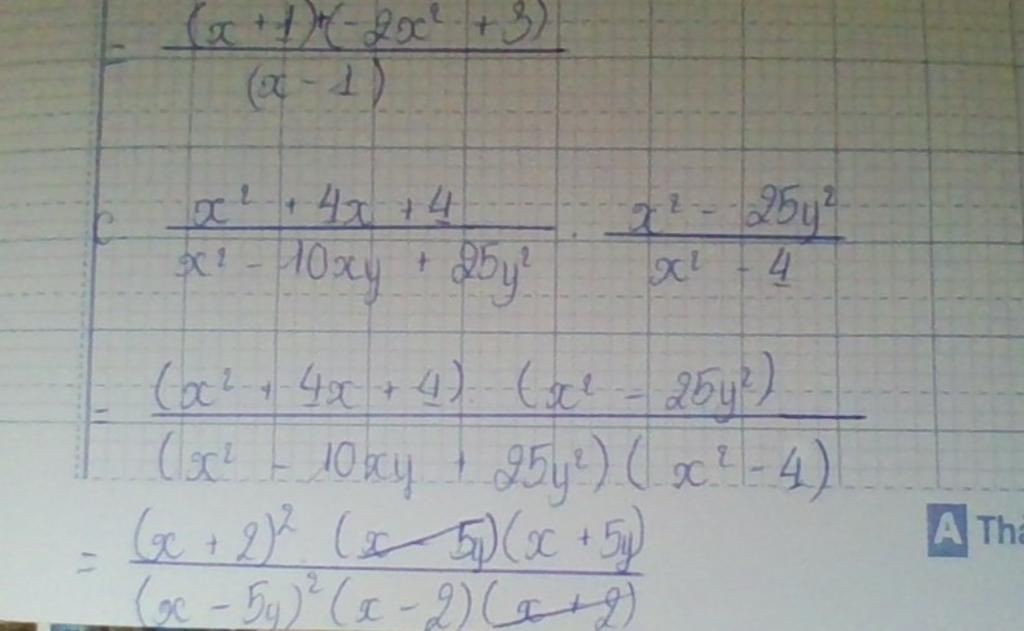 = (x + 1)(-2x² + 3) / (x - 1)
c x² + 4x + 4 / x² - 10xy + 25y² . x² - 25y² / x² - 4
= (x² + 4x + 4) (x² - 25y²) / (x² - 10xy + 25y²)(x² - 4)
= (x + 2)² (x - 5y)(x + 5y) / (x - 5y)² (x - 2)(x + 2)
A